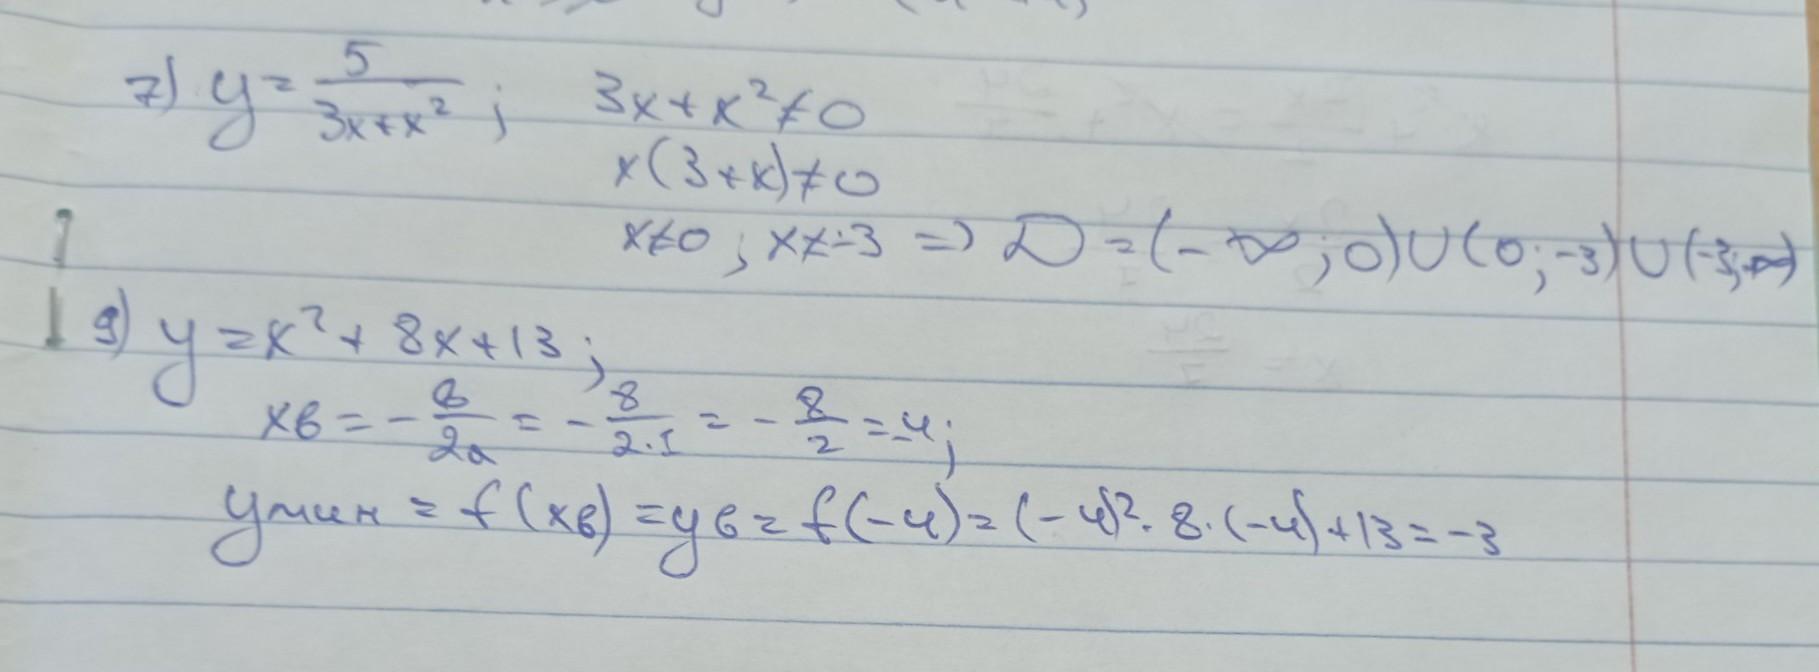 7) y = 5/(3x+x²) ; 3x+x² ≠ 0
x(3+x) ≠ 0
x≠0 ; x≠-3 => D = (-∞; 0)∪(0; -3)∪(-3; ∞)
9) y = x² + 8x + 13 ;
xв = - в/2a = - 8/2·1 = - 8/2 = -4;
yмин = f(xв) = yв = f(-4) = (-4)²· 8·(-4)+13 = -3